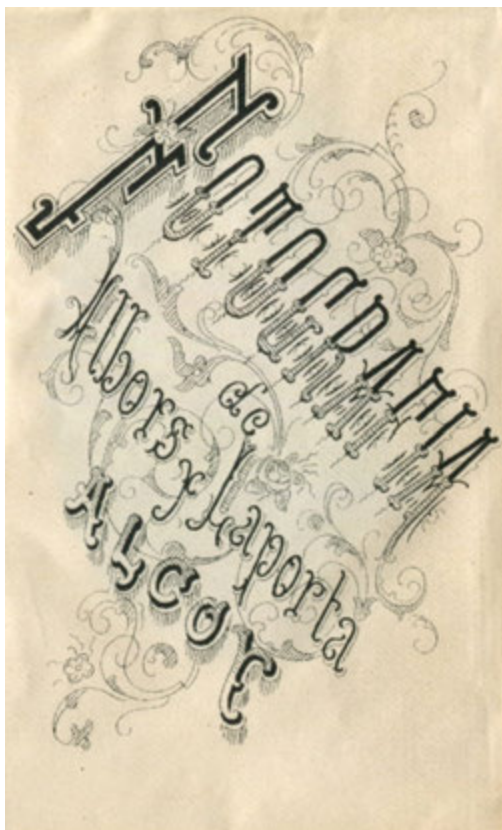 FOTOGRAFIA
de
Albors y Laporta
ALCOY